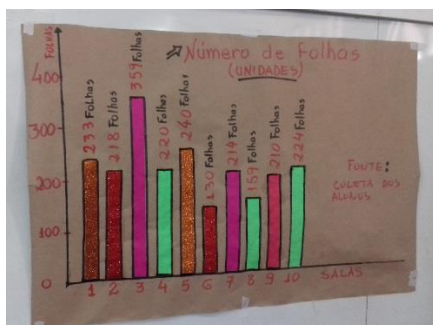 Número de folhas
(UNIDADES)
FOLHAS
400
300
200
100
0
233 Folhas
218 Folhas
359 Folhas
220 Folhas
240 Folhas
130 Folhas
214 Folhas
159 Folhas
210 Folhas
224 Folhas
FONTE:
COLETA DOS
ALUNOS
1 2 3 4 5 6 7 8 9 10 SALAS